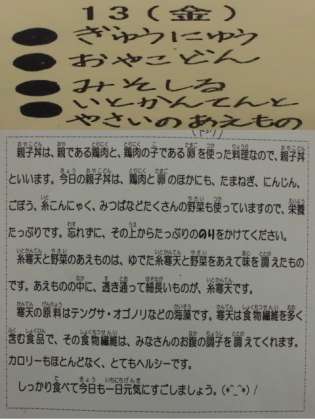 13(金)
●ぎゅうにゅう
●おやこどん
●みそしる
●いとかんてんと
やさいのあえもの
親子丼は、親である鶏肉と、鶏肉の子である卵を使った料理なので、親子丼
といいます。今日の親子丼は、鶏肉と卵のほかにも、たまねぎ、にんじん、
ごぼう、糸こんにゃく、みつばなどたくさんの野菜も使っていますので、栄養
たっぷりです。忘れずに、その上からたっぷりののりをかけてください。
糸寒天と野菜のあえものは、ゆでた糸寒天と野菜をあえて味を調えたもの
です。あえものの中に、透き通って細長いものが、糸寒天です。
寒天の原料はテングサ・オゴノリなどの海藻です。寒天は食物繊維を多く
含む食品で、その食物繊維は、みなさんのお腹の調子を調えてくれます。
カロリーもほとんどなく、とてもヘルシーです。
しっかり食べて今日も一日元気にすごしましょう。(*^_^*)/